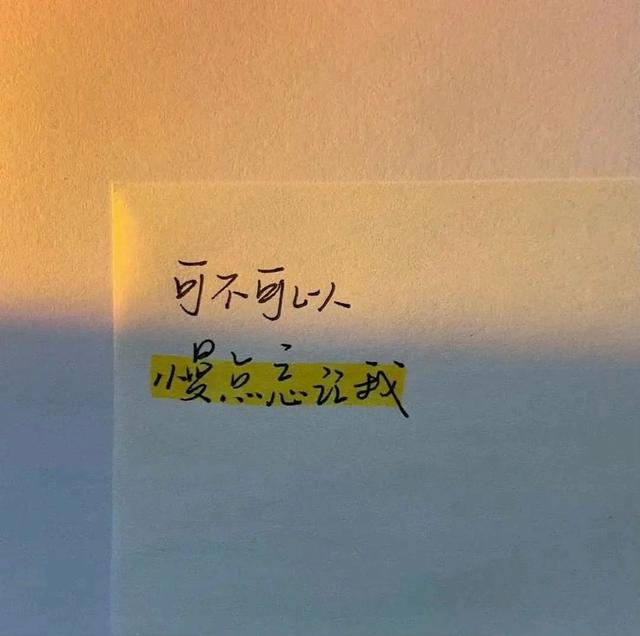 可不可以
慢点忘记我